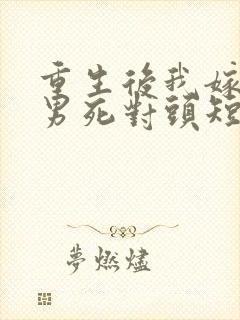 重生後我嫁
男死對頭短
夢燃燼